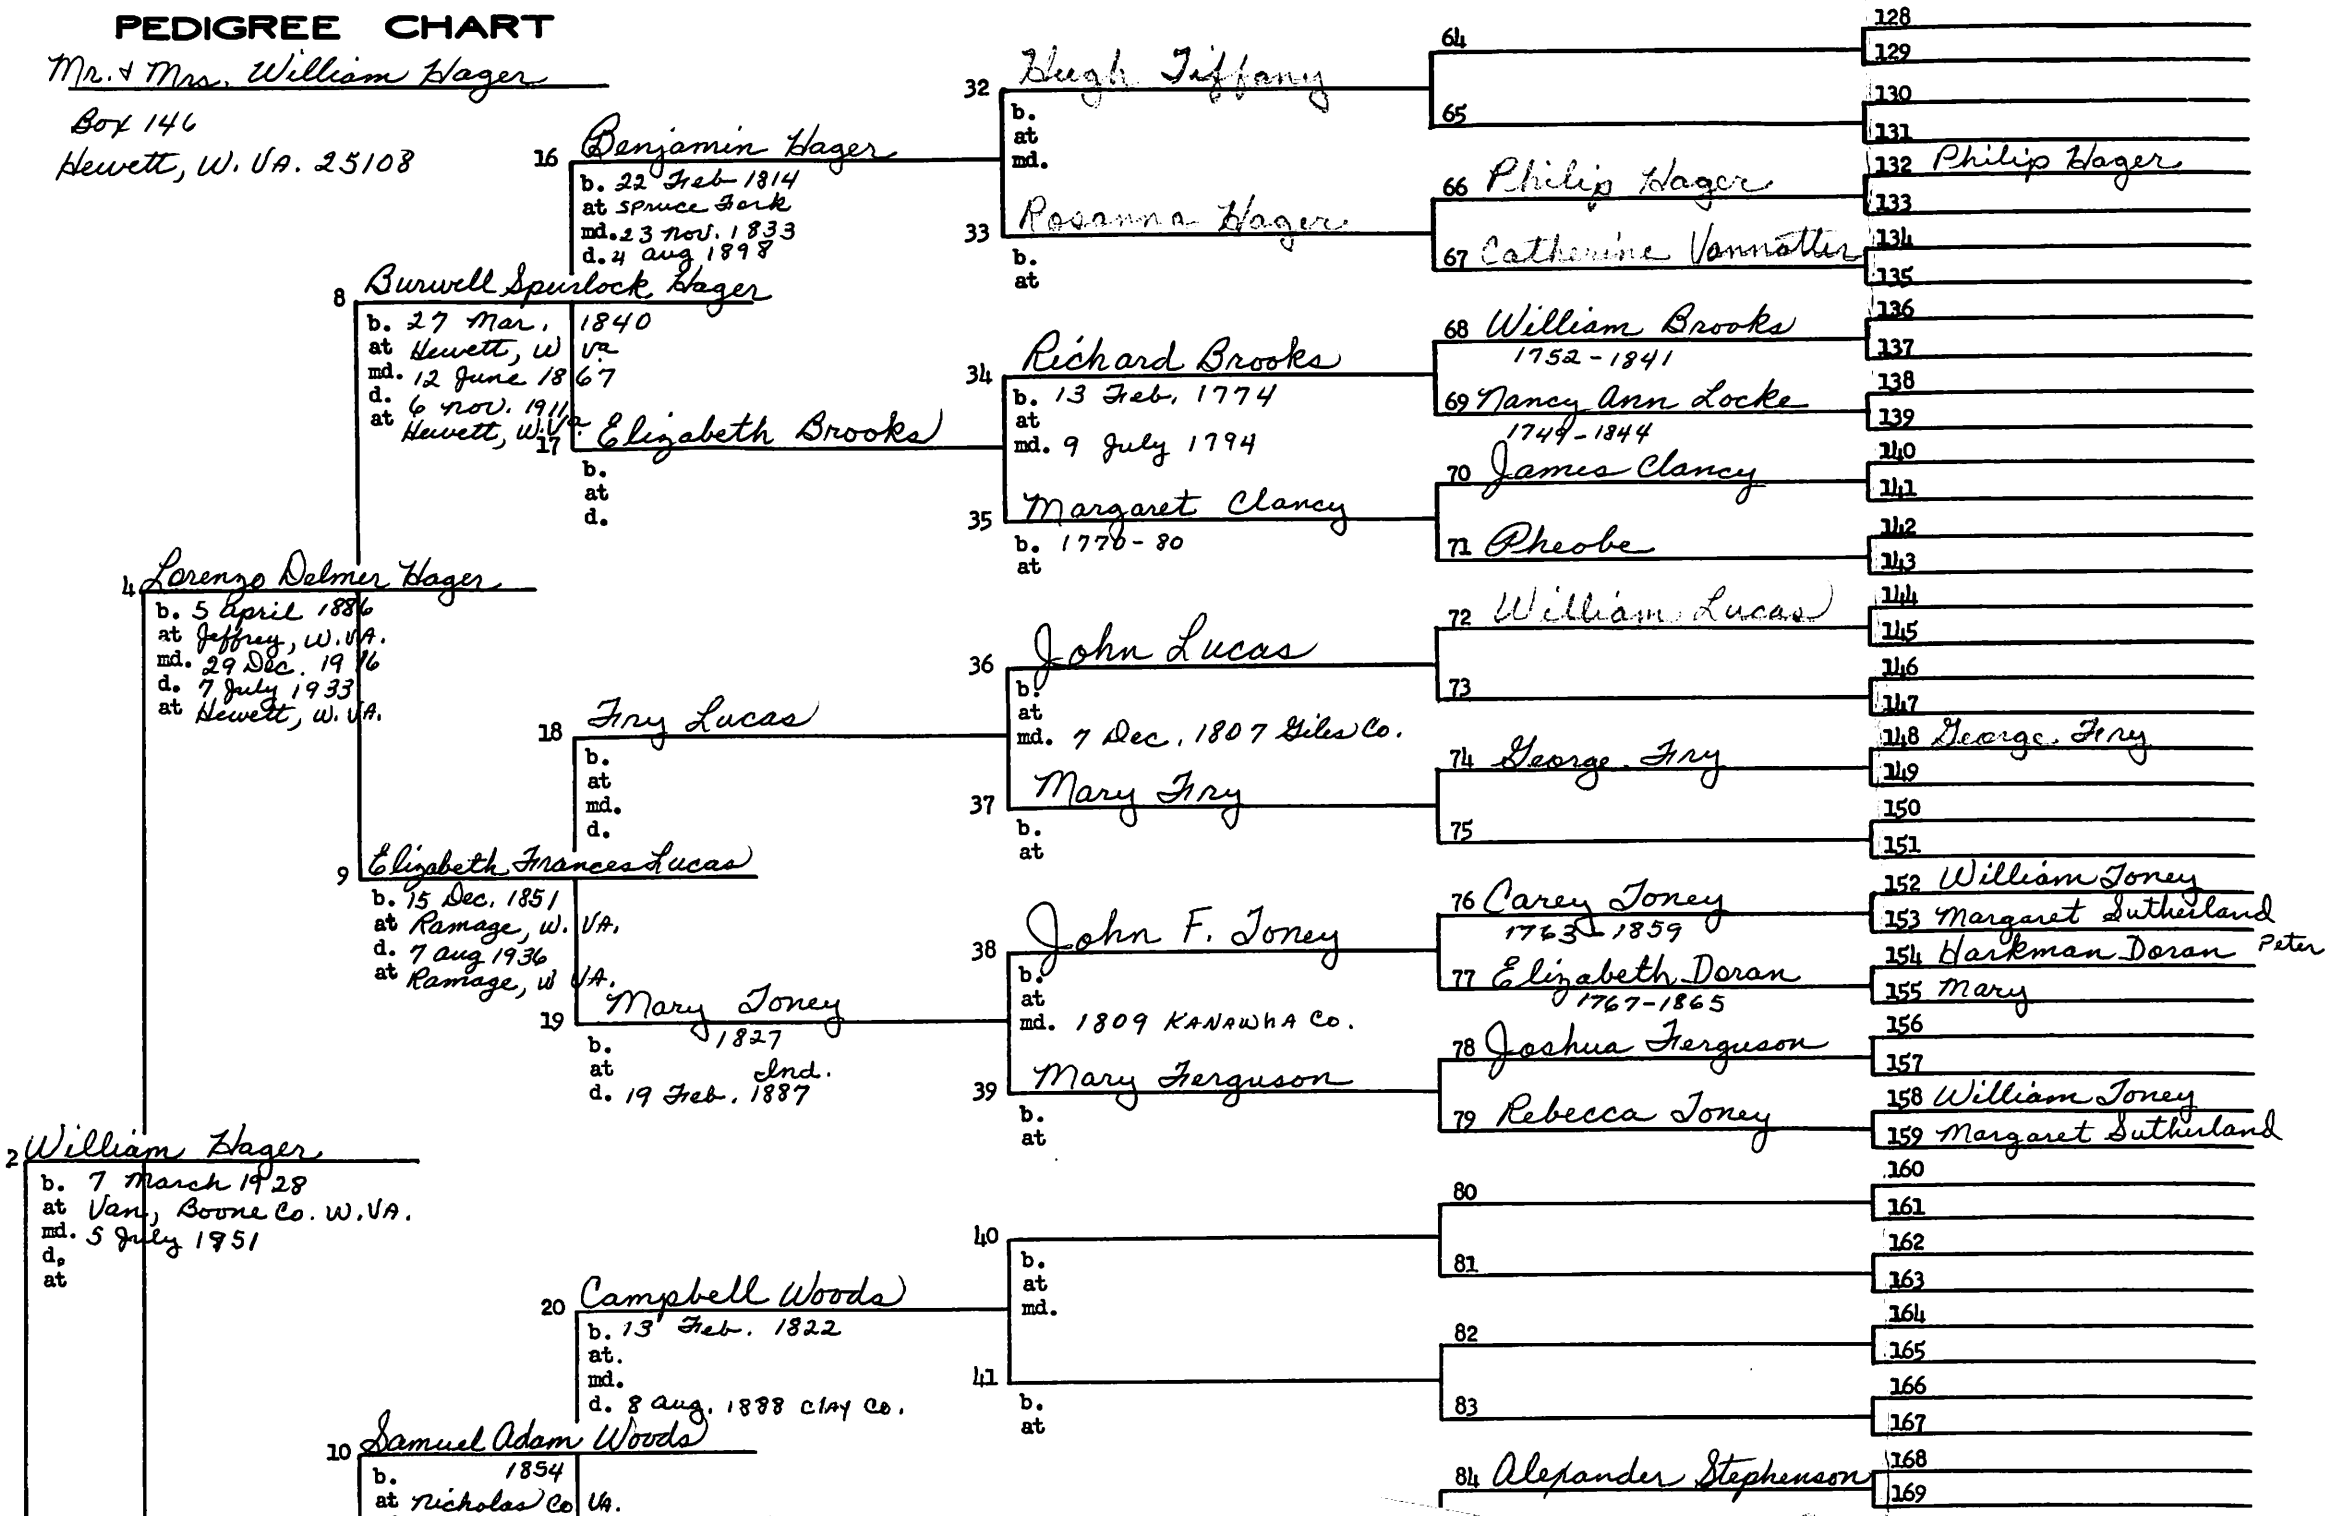 PEDIGREE CHART
Mr. & Mrs. William Hager
Box 146
Hewett, W. VA. 25108
2 William Hager
b. 7 March 1928
at Van, Boone Co. W.VA.
md. 5 July 1951
d.
at
4 Lorenzo Delmer Hager
b. 5 April 1886
at Jeffrey, W.VA.
md. 29 Dec. 1916
d. 7 July 1933
at Hewett, W.VA.
8 Burwell Spurlock Hager
b. 27 Mar. 1840
at Hewett, W Va
md. 12 June 1867
d. 6 Nov. 1911
at Hewett, W.Va.
9 Elizabeth Frances Lucas
b. 15 Dec. 1851
at Ramage, W. VA.
d. 7 Aug 1936
at Ramage, W VA.
10 Samuel Adam Woods
b. 1854
at Nicholas Co VA.
16 Benjamin Hager
b. 22 Feb 1814
at Spruce Fork
md. 23 Nov. 1833
d. 4 Aug 1898
17 Elizabeth Brooks
b.
at
d.
18 Fry Lucas
b.
at
md.
d.
19 Mary Toney
b. 1827
at Ind.
d. 19 Feb. 1887
20 Campbell Woods
b. 13 Feb. 1822
at.
md.
d. 8 Aug. 1888 Clay Co.
32 Hugh Tiffany
b.
at
md.
33 Rosanna Hager
b.
at
34 Richard Brooks
b. 13 Feb, 1774
at
md. 9 July 1794
35 Margaret Clancy
b. 1770-80
at
36 John Lucas
b.
at
md. 7 Dec. 1807 Giles Co.
37 Mary Fry
b.
at
38 John F. Toney
b.
at
md. 1809 KANAWHA Co.
39 Mary Ferguson
b.
at
40
b.
at
md.
41
b.
at
64
65
66 Philip Hager
67 Catherine Vannatter
68 William Brooks
1752-1841
69 Nancy Ann Locke
1749-1844
70 James Clancy
71 Pheobe
72 William Lucas
73
74 George Fry
75
76 Carey Toney
1763-1859
77 Elizabeth Doran
1767-1865
78 Joshua Ferguson
79 Rebecca Toney
80
81
82
83
84 Alexander Stephenson
128
129
130
131
132 Philip Hager
133
134
135
136
137
138
139
140
141
142
143
144
145
146
147
148 George Fry
149
150
151
152 William Toney
153 Margaret Sutherland
154 Harkman Doran Peter
155 Mary
156
157
158 William Toney
159 Margaret Sutherland
160
161
162
163
164
165
166
167
168
169